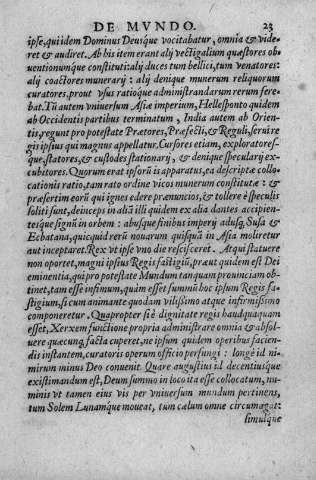 DE MVNDO. 23
ipse, qui idem Dominus Deusque vocitabatur, omnia & vide
ret & audiret. Ab his item erant alij vectigalium quæstores ob
uentionumque constituti: alij duces tum bellici, tum venatores:
alij coactores munerarij: alij denique munerum reliquorum
curatores, prout vsus ratioque administrandarum rerum fere
bat. Tũ autem vniuersum Asiæ imperium, Hellesponto quidem
ab Occidentis partibus terminatum, India autem ab Orien
tis, regunt pro potestate Prætores, Præfecti, & Reguli, serui re
gis ipsius qui magnus appellatur. Cursores etiam, exploratores-
que, statores, & custodes stationarij, & denique specularij ex-
cubitores. Quorum erat ipsorũ is apparatus, ea descriptæ collo
cationis ratio, tam rato ordine vicos munerum constitutæ: &
præsertim eorũ qui ignes edere prænuncios, & tollere è speculis
soliti sunt, deinceps in aliã illi quidem ex alia dantes accipien-
tesque signũ in orbem: abusque finibus imperij adusq, Susa &
Ecbatana, quicquid rerũ nouarum quisquã in Asia moliretur
aut inceptaret. Rex vt ipse vno die resciscere. Atqui statuere
non oportet, magni ipsius Regis fastigiũ, præut quidem est Dei
eminentia, qui pro potestate Mundum tanquam prouinciam ob
tinet, tam esse infimum, quàm esset summũ hoc ipsum Regis fa-
stigium, si cum animante quodam vilissimo atque infirmissimo
componeretur. Quapropter siè dignitate regis haudquaquam
esset, Xerxem functione propria administrare omnia & absol-
uere quæcunq, facta cuperet, ne ipsum quidem operibus facien-
dis instantem, curatoris operum officio perfungi: longè id ni-
mirum minus Deo conuenit. Quare augustius id decentiusque
existimandum est, Deum summo in loco ita esse collocatum, nu-
minis vt tamen eius vis per vniuersum mundum pertinens,
tum Solem Lunamque moueat, tum cælum omne circumagat:
simulque